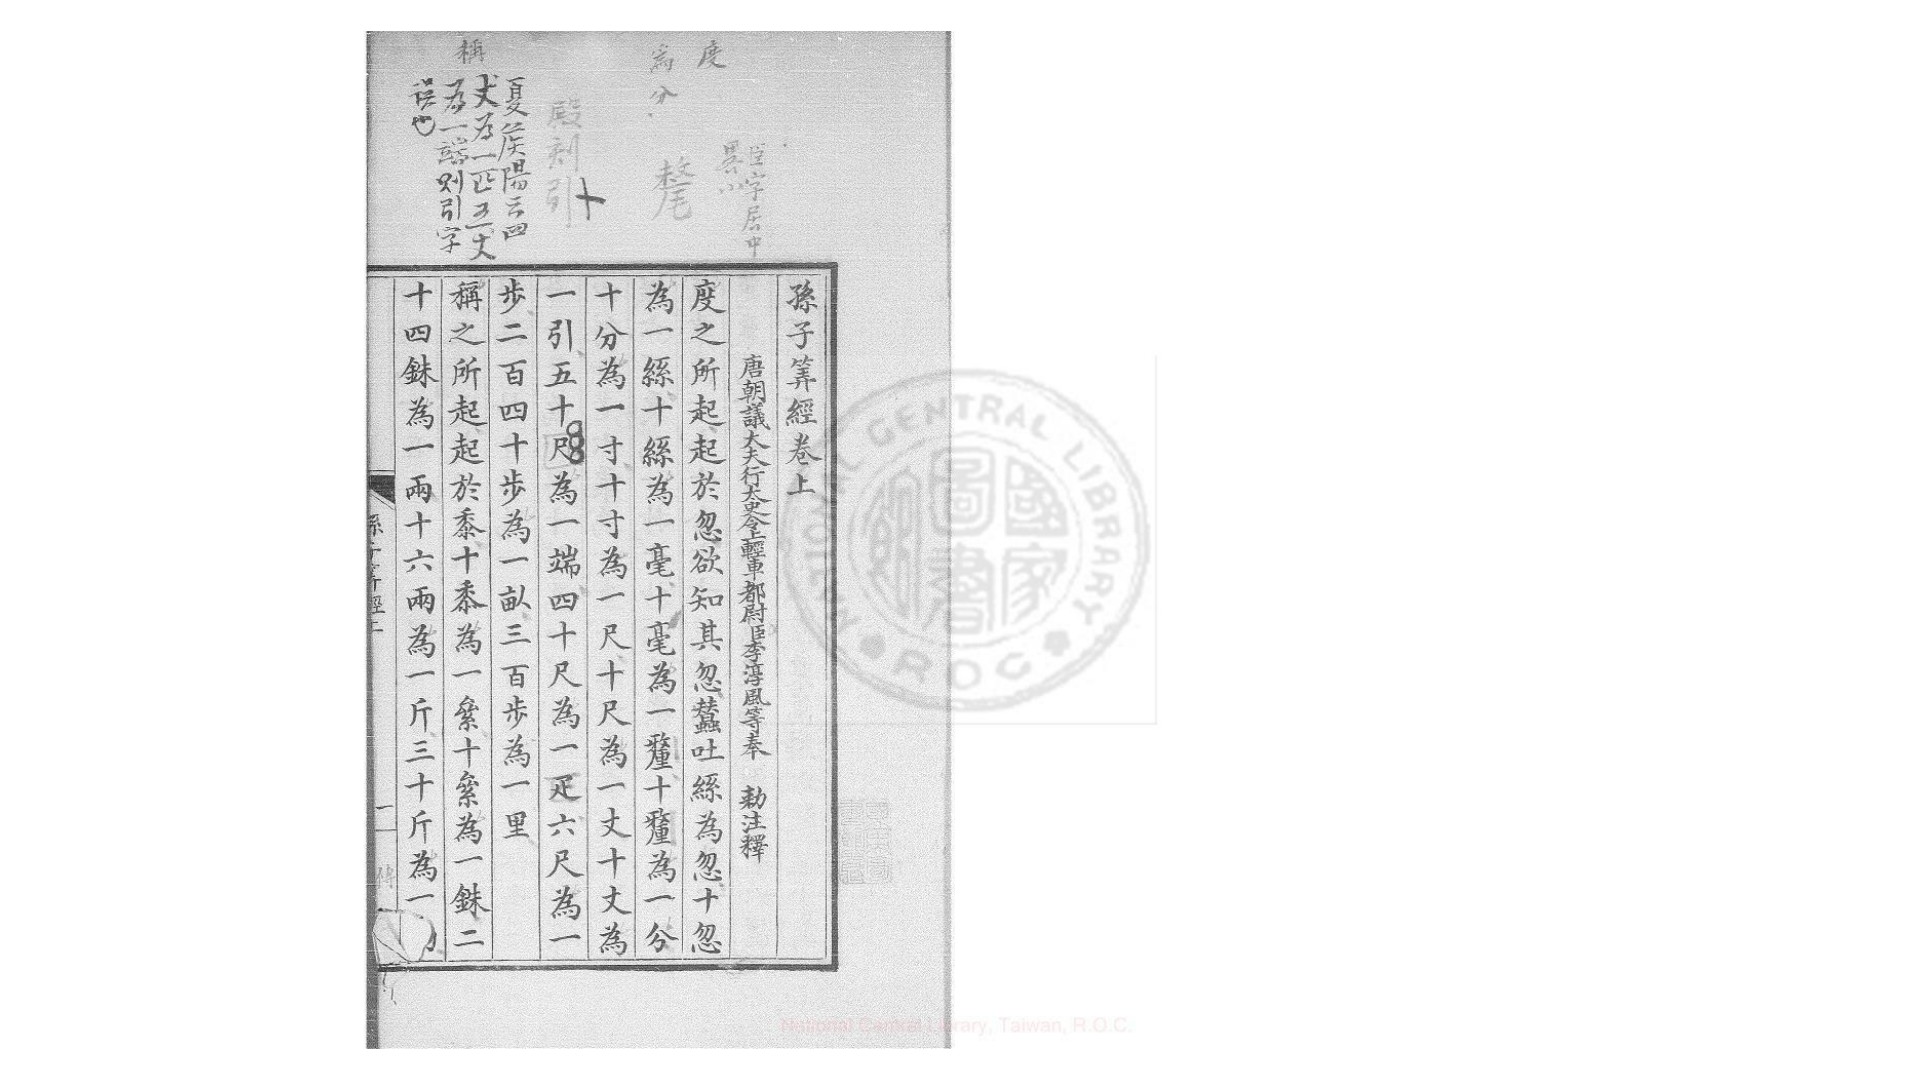 孫子筭經卷上
唐朝議大夫行太史令上輕車都尉臣李淳風等奉 勅注釋
度之所起起於忽欲知其忽蠶吐絲為忽十忽
為一絲十絲為一毫十毫為一釐十釐為一分
十分為一寸十寸為一尺十尺為一丈十丈為
一引五十尺為一端四十尺為一疋六尺為一
步二百四十步為一畝三百步為一里
稱之所起起於黍十黍為一絫十絫為一銖二
十四銖為一兩十六兩為一斤三十斤為一
度
為分
臣字居中
畧小
氂
殿刻引
夏侯陽云四
丈為一匹五丈
為一端則引字
誤也
稱
孫子筭經上
一
傅
NATIONAL CENTRAL LIBRARY
R.O.C
國家圖書
National Central Library, Taiwan, R.O.C.